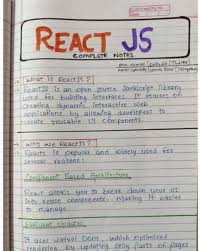 REACT JS
COMPLETE NOTES
What is ReactJS?
ReactJS is an open source JavaScript library
used for building interfaces. It focuses on
creating dynamic interactive web
applications by allowing developers to
create reusable UI components.
Why use ReactJS?
Reactjs is popular and widely used for
several reasons:
Component Based Architecture:
React allows you to break down your UI
into reuse components. Making it easier
to manage.
Efficient Updates:
It uses Virtual DOM, which optimized
rendering by updating only parts of pages